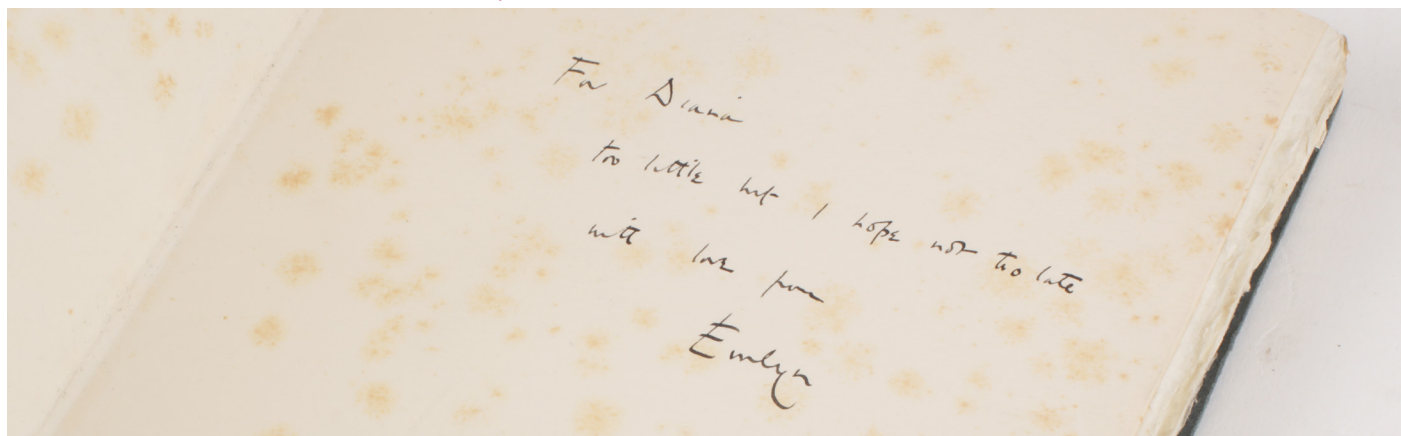 For Diana
too little but I hope not too late
with love from
Evelyn